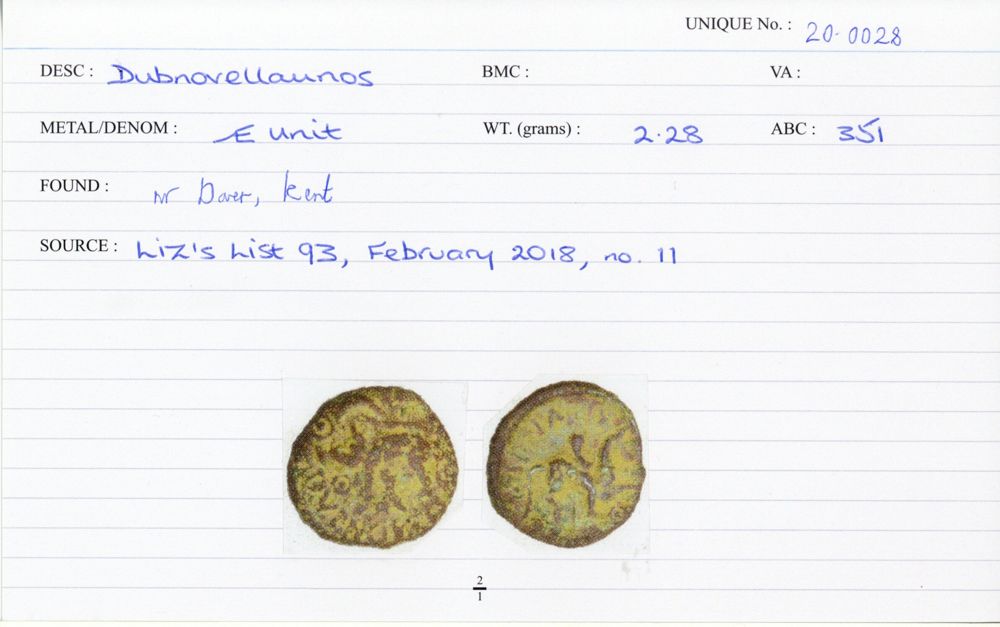 UNIQUE No. : 20.0028
DESC : Dubnovellaunos BMC : VA :
METAL/DENOM : Æ unit WT. (grams) : 2.28 ABC : 351
FOUND : nr Dover, Kent
SOURCE : Liz's List 93, February 2018, no. 11
2
1